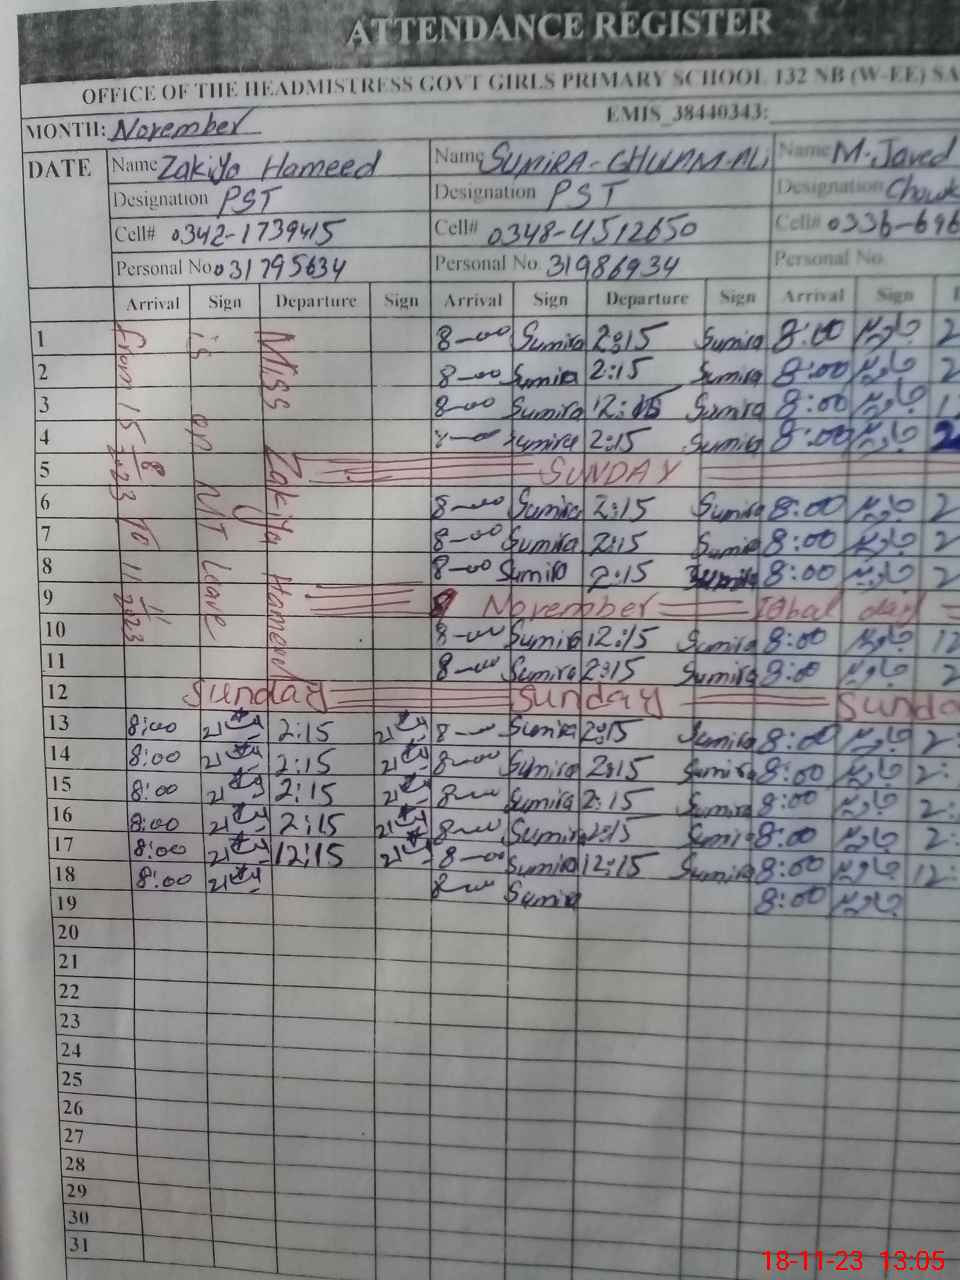 ATTENDANCE REGISTER
OFFICE OF THE HEADMISTRESS GOVT GIRLS PRIMARY SCHOOL 132 NB (W-EE) SA
MONTH: November EMIS_38440343:
DATE Name Zakiya Hameed Name SUMIRA-GHULAM-ALi Name M-Javed
Designation PST Designation PST Designation Chowk
Cell# 0342-1739415 Cell# 0348-4512650 Cell# 0336-696
Personal No 031795634 Personal No. 31986934 Personal No.
Arrival Sign Departure Sign Arrival Sign Departure Sign Arrival Sign
Miss Zakiya Hameed
is on M/T Leave
from 15 8 2023 To 11 11 2023
1 8-00 Sumira 2:15 Sumira 8:00 جاوید 2
2 8-00 Sumira 2:15 Sumira 8:00 جاوید 2
3 8-00 Sumira 12:15 Sumira 8:00 جاوید 1
4 Sumira 2:15 Sumira 8:00 جاوید 2
5 SUNDAY
6 8-00 Sumira 2:15 Sumira 8:00 جاوید 2
7 8-00 Sumira 2:15 Sumira 8:00 جاوید 2
8 8-00 Sumira 2:15 Sumira 8:00 جاوید 2
9 9 November Iqbal day
10 8-00 Sumira 12:15 Sumira 8:00 جاوید 12
11 8-00 Sumira 2:15 Sumira 8:00 جاوید 2
12 Sunday Sunday Sunda
13 8:00 2:15 8-00 Sumira 2:15 Sumira 8:00 جاوید 2:
14 8:00 2:15 8-00 Sumira 2:15 Sumira 8:00 جاوید 2:
15 8:00 2:15 8-00 Sumira 2:15 Sumira 8:00 جاوید 2:
16 8:00 2:15 8-00 Sumira 2:15 Sumira 8:00 جاوید 2:
17 8:00 12:15 8-00 Sumira 12:15 Sumira 8:00 جاوید 12:
18 8:00 8-00 Sumira 8:00 جاوید
19
20
21
22
23
24
25
26
27
28
29
30
31
18-11-23 13:05